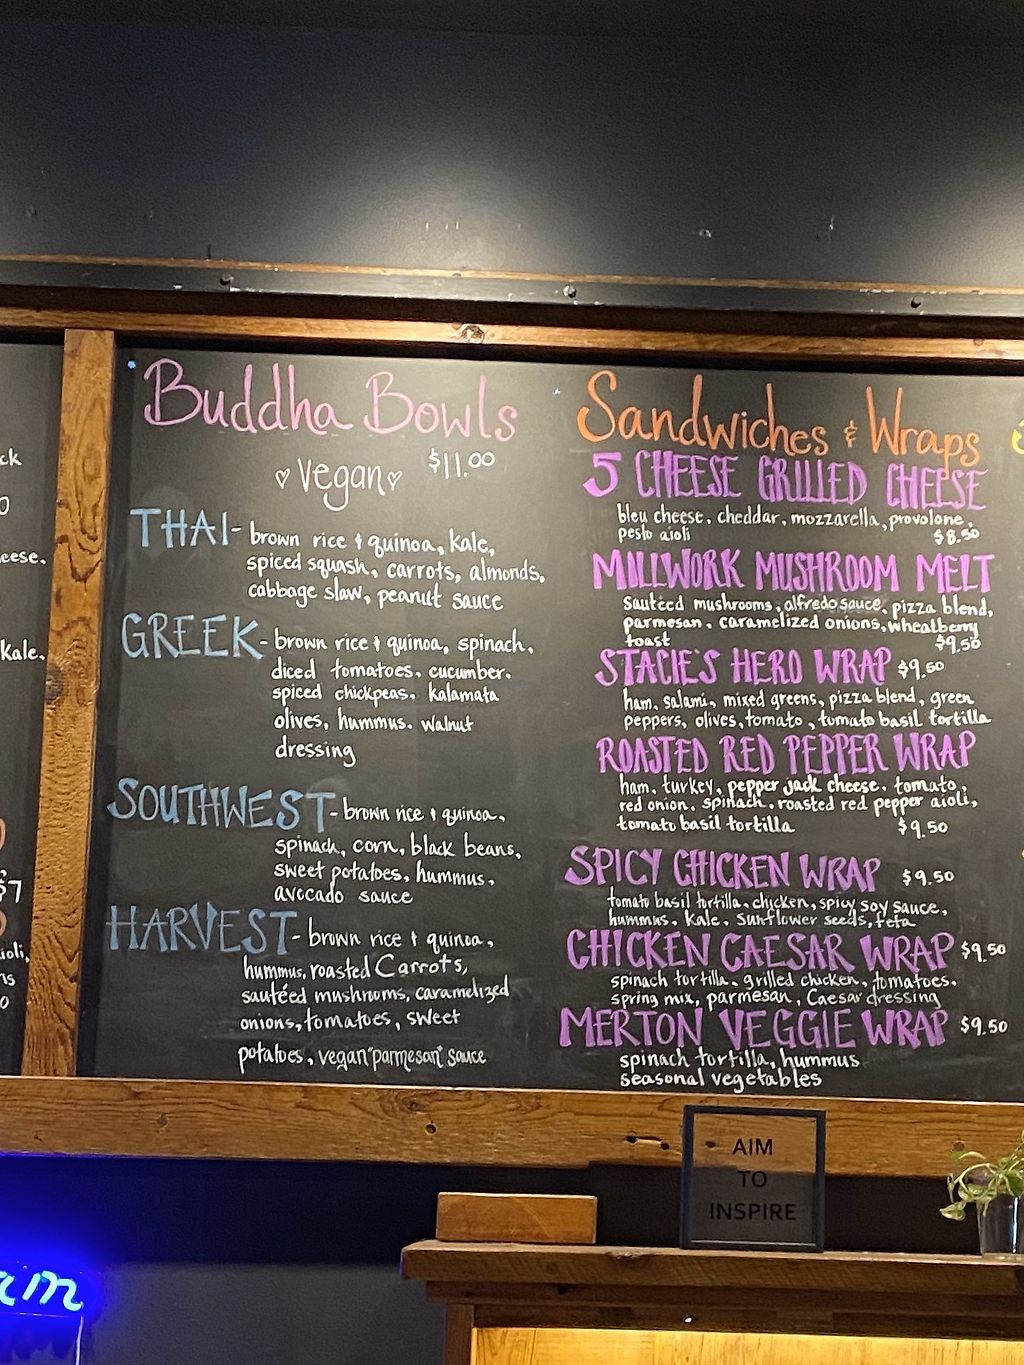 ck
0
eese.
kale.
$7
ioli,
ns
0
Buddha Bowls
vegan $11.00
THAI- brown rice & quinoa, kale,
spiced squash, carrots, almonds,
cabbage slaw, peanut sauce
GREEK- brown rice & quinoa, spinach,
diced tomatoes, cucumber,
spiced chickpeas, kalamata
olives, hummus, walnut
dressing
SOUTHWEST- brown rice & quinoa,
spinach, corn, black beans,
sweet potatoes, hummus,
avocado sauce
HARVEST- brown rice & quinoa,
hummus, roasted Carrots,
sautéed mushrooms, caramelized
onions, tomatoes, sweet
potatoes, vegan "parmesan" sauce
Sandwiches & Wraps
5 CHEESE GRILLED CHEESE
bleu cheese, cheddar, mozzarella, provolone,
pesto aioli $8.50
MILLWORK MUSHROOM MELT
Sauteed mushrooms, alfredo sauce, pizza blend,
parmesan, caramelized onions, wheatberry
toast $9.50
STACIE'S HERO WRAP $9.50
ham, salami, mixed greens, pizza blend, green
peppers, olives, tomato, tomato basil tortilla
ROASTED RED PEPPER WRAP
ham, turkey, pepper jack cheese, tomato,
red onion, spinach, roasted red pepper aioli,
tomato basil tortilla $9.50
SPICY CHICKEN WRAP $9.50
tomato basil tortilla, chicken, spicy soy sauce,
hummus, Kale, Sunflower seeds, feta
CHICKEN CAESAR WRAP $9.50
spinach tortilla, grilled chicken, tomatoes,
spring mix, parmesan, Caesar dressing
MERTON VEGGIE WRAP $9.50
spinach tortilla, hummus
seasonal vegetables
AIM
TO
INSPIRE
am